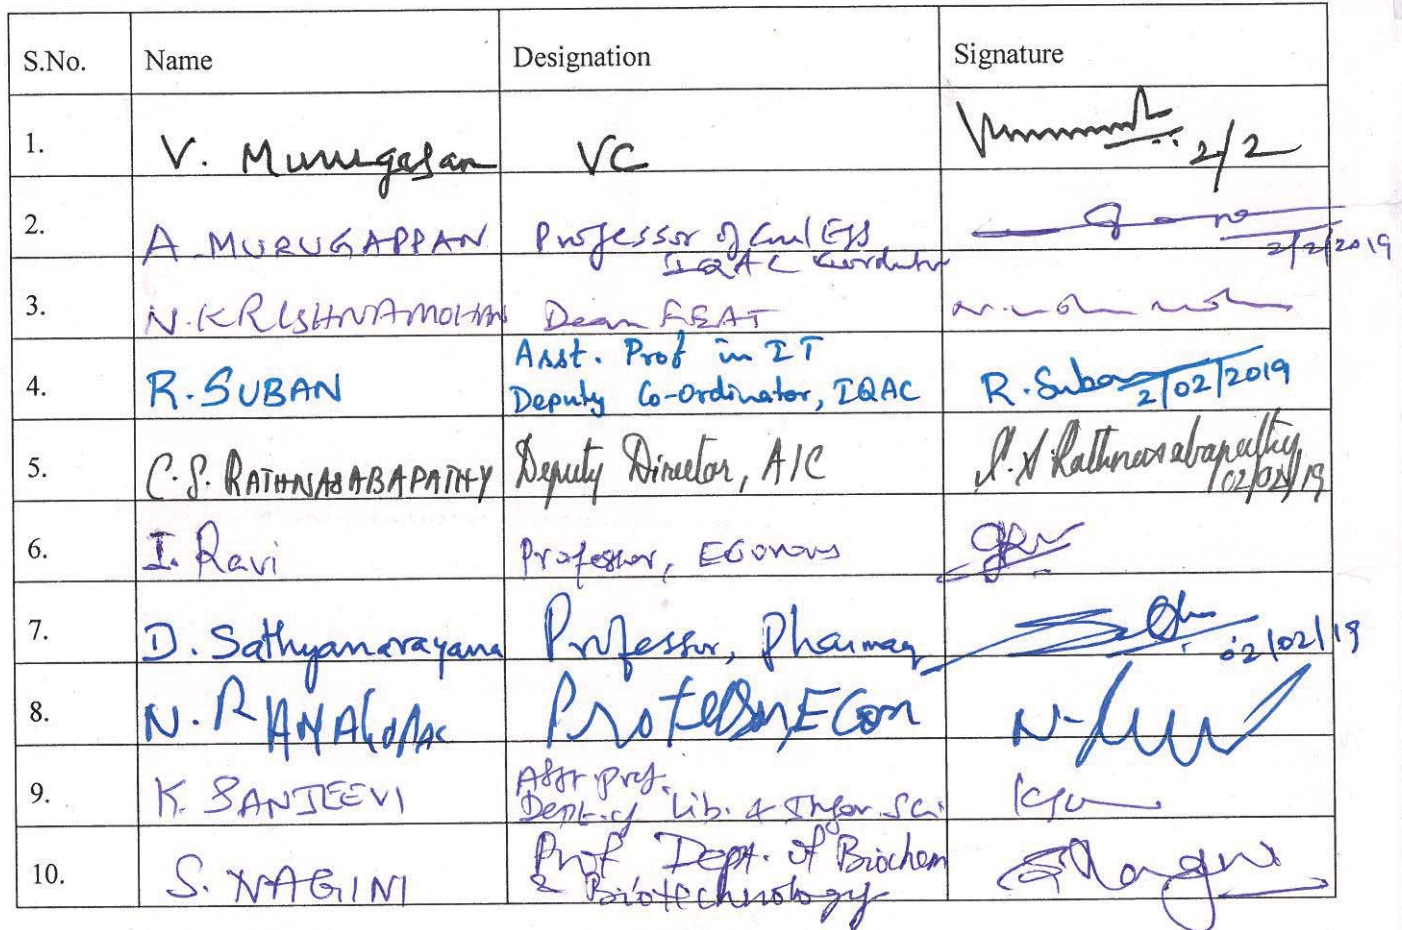 S.No. Name Designation Signature
1. V. Murugesan VC 2/2
2. A. MURUGAPPAN Professor of Civil Egg,
IQAC Coordinator 2/2/2019
3. N. KRISHNAMOHAN Dean FEAT
Asst. Prof in IT
4. R. SUBAN Deputy Co-ordinator, IQAC R. Suban 2/02/2019
5. C. S. RATHNASABAPATHY Deputy Director, AIC C. S. Rathnasabapathy
02/02/19
6. I. Ravi Professor,
7. D. Sathyanarayana Professor, Pharmacy 02/02/19
8. N. RAMAGOPAL Professor, Econ
Asst prof.
9. K. SANJEEVI Dept. of Lib. & Infor. Sci
Prof Dept. of Biochem
10. S. NAGINI & Biotechnology